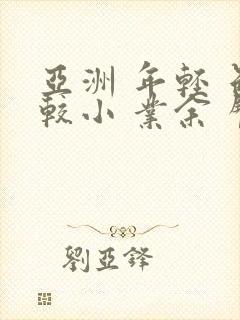 亞洲 年輕
較小 業余
劉亞鋒